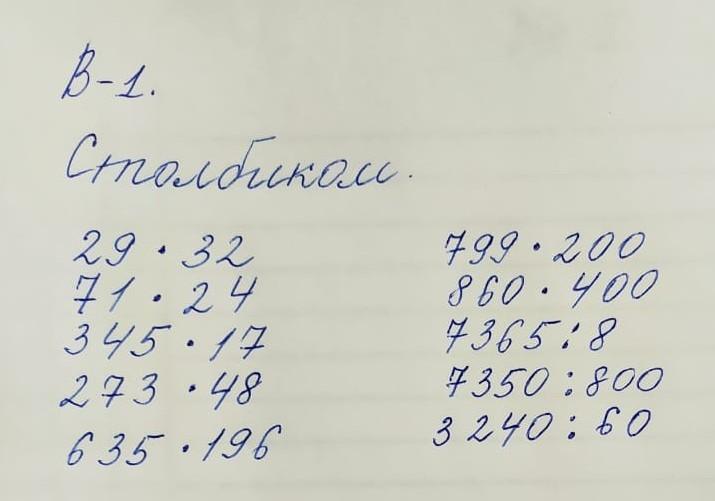 В-1.
Столбиком.
29 · 32
71 · 24
345 · 17
273 · 48
635 · 196
799 · 200
860 · 400
7365 : 8
7350 : 800
3240 : 60